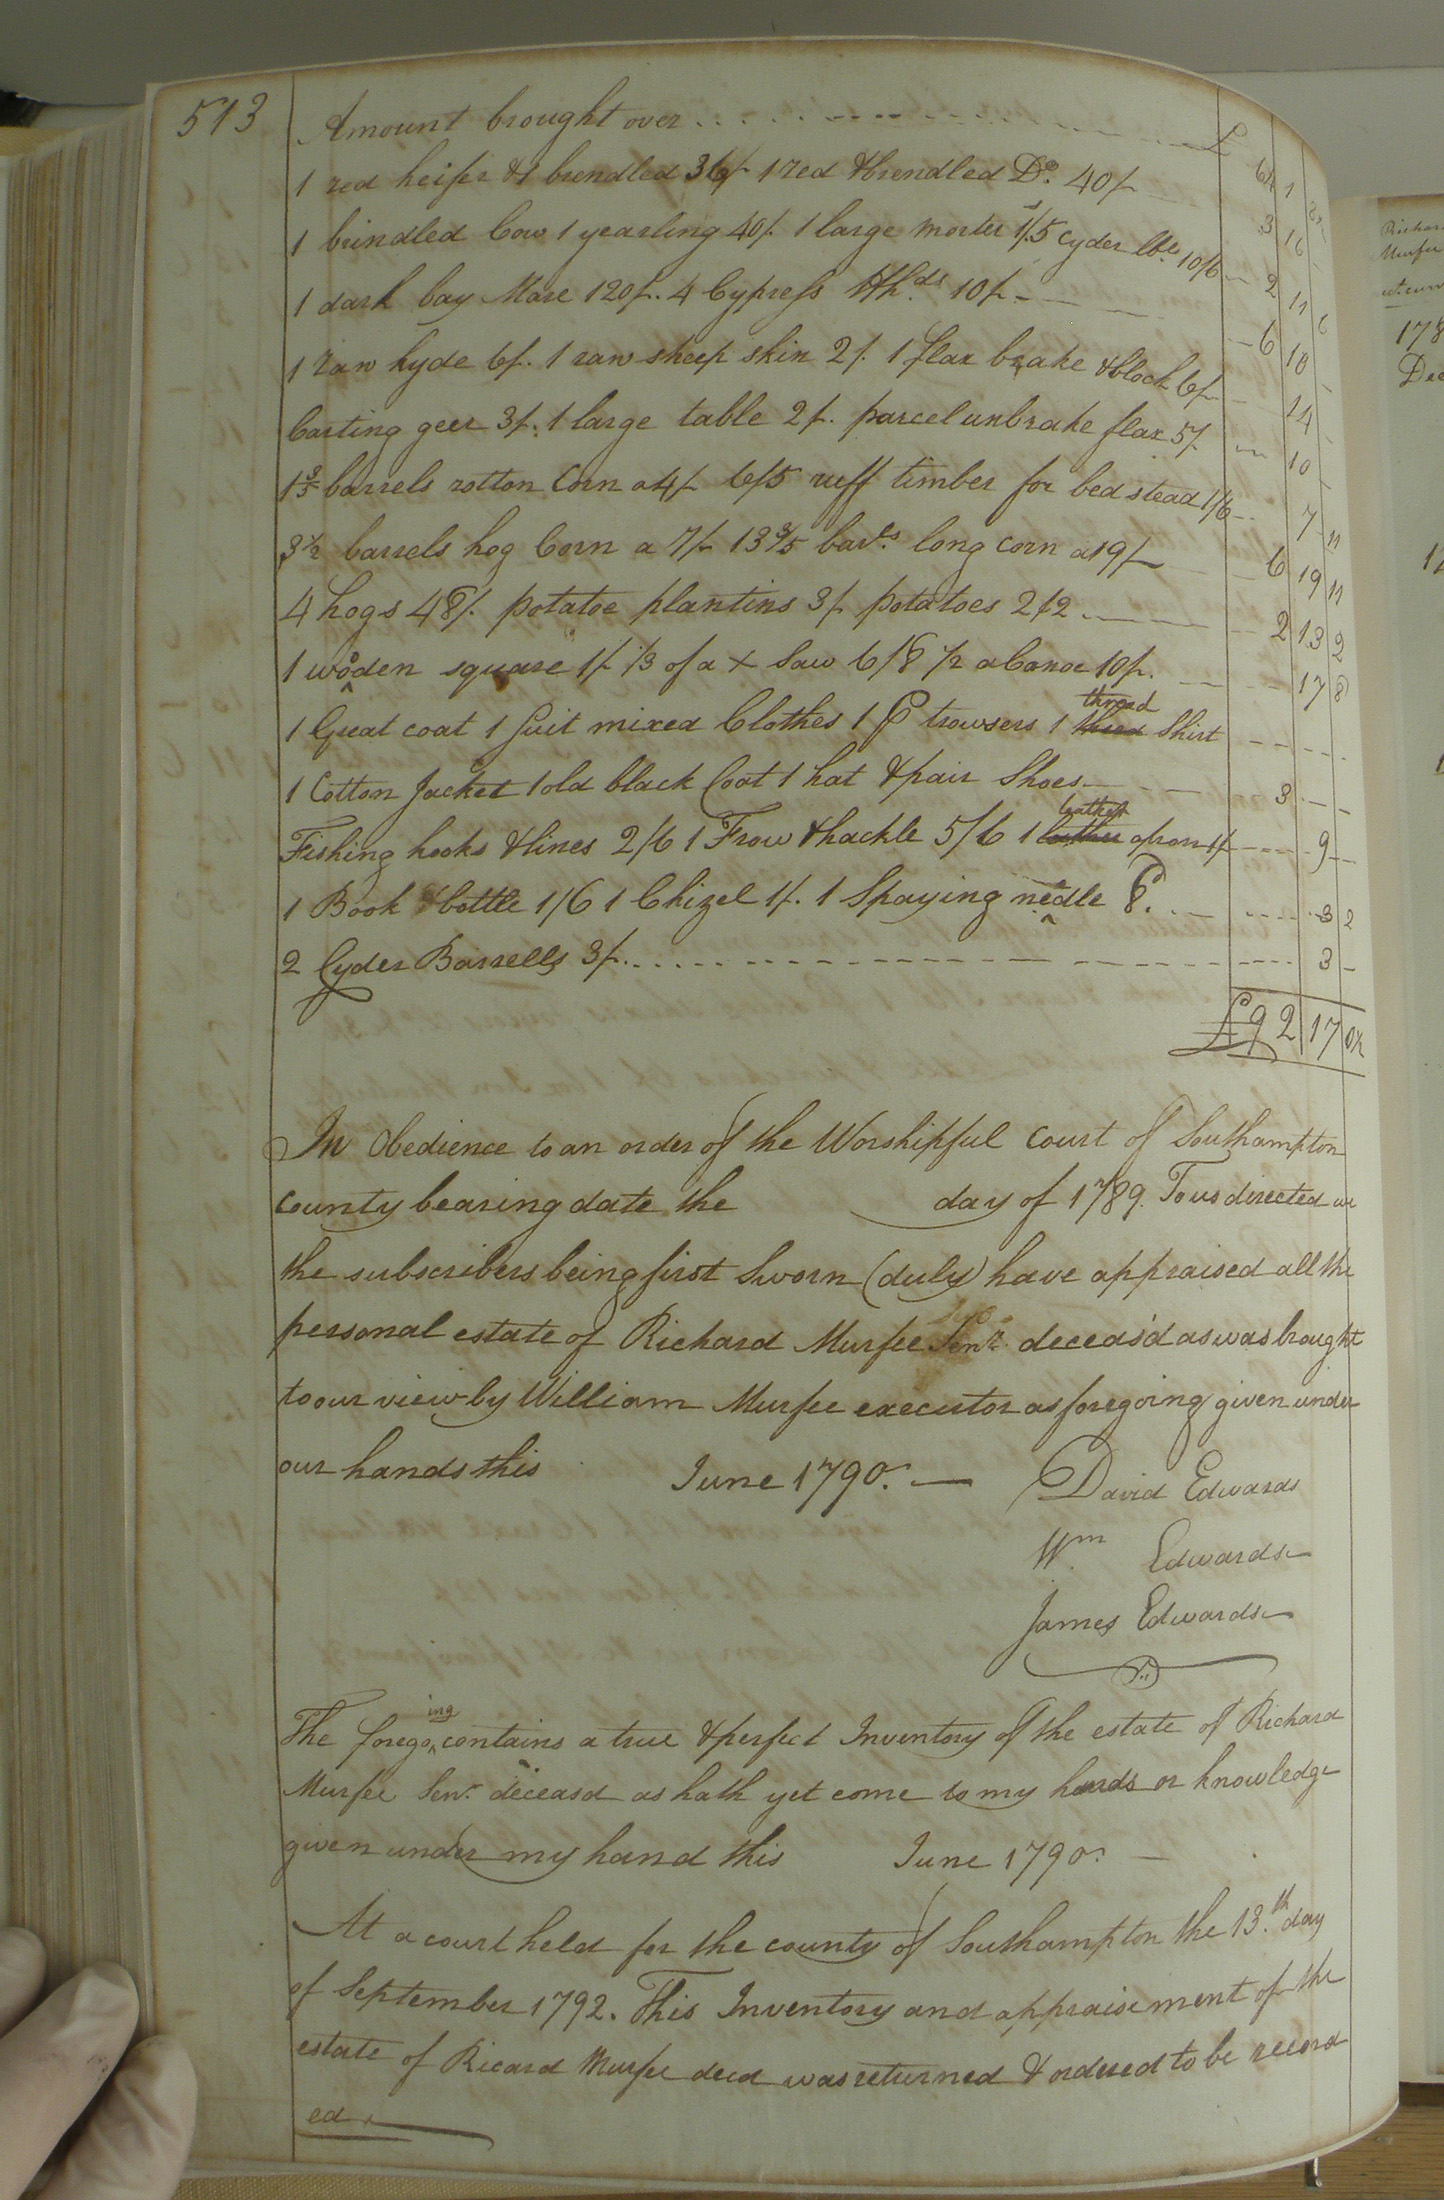 513
Amount brought over . . . . . . £ 64 1
1 red heifer & 1 brendled 36/ 1 red & brendled Do. 40/- 3 16 -
1 brindled Cow 1 yearling 40/. 1 large morter 1/. 5 Cyder Cbs. 10/6 - 2 11 6
1 dark bay Mare 120/. 4 Cypress Hhds 10/- - 6 10 -
1 raw hyde 6/. 1 raw sheep skin 2/. 1 flax brake & block 6/ - 14 -
Carting geer 3/. 1 large table 2/. parcel unbrake flax 5/ - 10 -
1 3/5 barrels rotton Corn a 4/- 6/5 ruff timber for bed stead 1/6 - 7 11
3 1/2 barrels hog Corn a 7/- 13 3/5 barls. long corn a 9/- - 6 19 11
4 hogs 48/. potatoe plantins 3/. potatoes 2/2 - 2 13 2
1 wooden square 1/- 1/3 of a + Saw 6/8 1/2 a Canoe 10/. - 17 8
1 Great coat 1 Suit mixed Clothes 1 P trowsers 1 thread Shirt
1 Cotton Jacket 1 old black Coat 1 hat & pair Shoes - 3 - -
Fishing hooks & lines 2/6 1 Frow & hackle 5/6 1 leather apron 1/- - 9 -
1 Book & bottle 1/6 1 Chizel 1/. 1 Spaying neadle 8. - 3 2
2 Cyder Barrells 3/. - 3 -
£92 17 0 1/2
In Obedience to an order of the Worshipful Court of Southampton
County bearing date the day of 1789. To us directed we
the subscribers being first Sworn (duly) have appraised all the
personal estate of Richard Murfee Senr. deceas'd as was brought
to our view by William Murfee executor as foregoing given under
our hands this June 1790. — David Edwards
Wm. Edwards
James Edwards
The foregoing contains a true & perfect Inventory of the estate of Richard
Murfee Senr. deceasd as hath yet come to my hands or knowledge
given under my hand this June 1790. —
At a court held for the county of Southampton the 13.th day
of September 1792. This Inventory and appraisement of the
estate of Ricard Murfee decd was returned & ordered to be record
ed.
Richard
Murfee
178
Dec